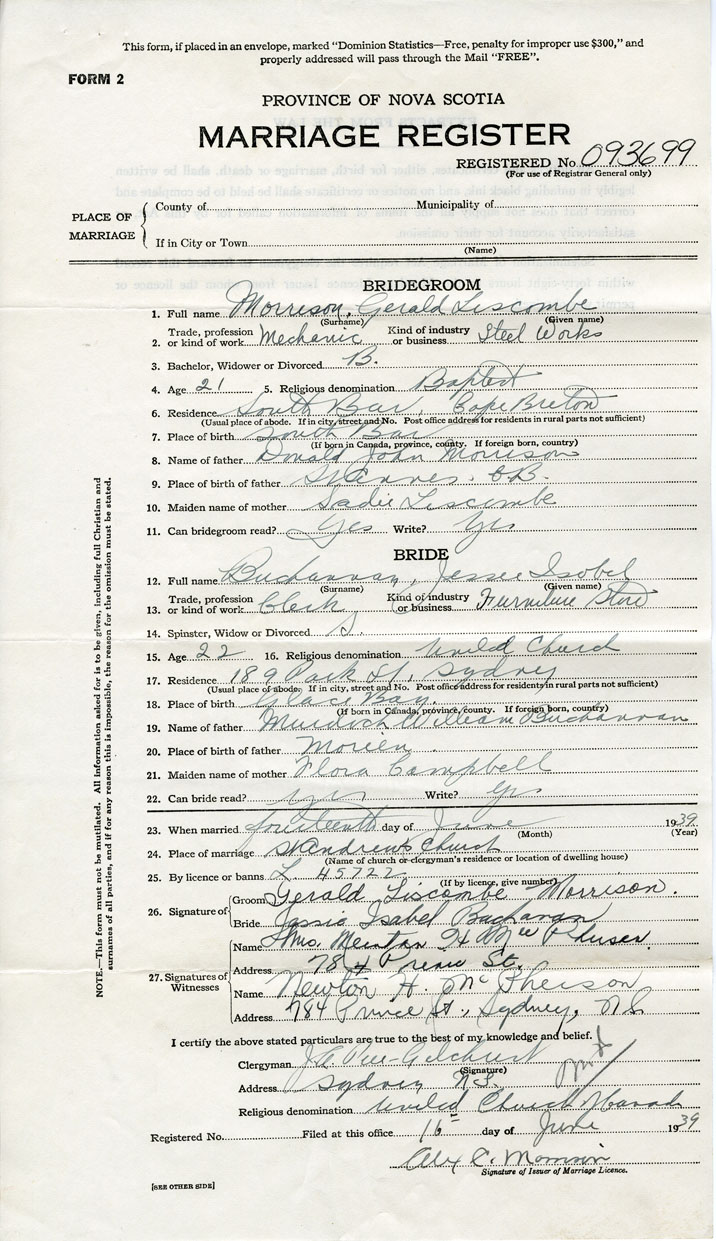 This form, if placed in an envelope, marked "Dominion Statistics—Free, penalty for improper use $300," and
properly addressed will pass through the Mail "FREE".
FORM 2
PROVINCE OF NOVA SCOTIA
MARRIAGE REGISTER
REGISTERED No. 093699
(For use of Registrar General only)
PLACE OF MARRIAGE
County of Municipality of
If in City or Town
(Name)
BRIDEGROOM
1. Full name Morrison, Gerald Liscombe
(Surname) (Given name)
2. Trade, profession or kind of work Mechanic Kind of industry or business Steel Works
3. Bachelor, Widower or Divorced B.
4. Age 21 5. Religious denomination Baptist
6. Residence South Bar, Cape Breton
(Usual place of abode. If in city, street and No. Post office address for residents in rural parts not sufficient)
7. Place of birth South Bar
(If born in Canada, province, county. If foreign born, country)
8. Name of father Donald John Morrison
9. Place of birth of father St Annes. C.B.
10. Maiden name of mother Sadie Liscombe
11. Can bridegroom read? Yes Write? Yes
BRIDE
12. Full name Buchannan, Jessie Isobel
(Surname) (Given name)
13. Trade, profession or kind of work Clerk Kind of industry or business Furniture Store
14. Spinster, Widow or Divorced S.
15. Age 22 16. Religious denomination United Church
17. Residence 189 Park St, Sydney
(Usual place of abode. If in city, street and No. Post office address for residents in rural parts not sufficient)
18. Place of birth Glace Bay
(If born in Canada, province, county. If foreign born, country)
19. Name of father Murdoch William Buchannan
20. Place of birth of father Morien
21. Maiden name of mother Flora Campbell
22. Can bride read? Yes Write? Yes
23. When married fourteenth day of June 1939
(Month) (Year)
24. Place of marriage St Andrews Church
(Name of church or clergyman's residence or location of dwelling house)
25. By licence or banns L. 45722
(If by licence, give number)
26. Signature of Groom Gerald Liscombe Morrison.
Bride Jessie Isabel Buchanan
27. Signatures of Witnesses
Name Mrs. H
Address 784 St.
Name Newton H. McPherson
Address 784 Prince St., Sydney, N.S
I certify the above stated particulars are true to the best of my knowledge and belief.
Clergyman
(Signature)
Address Sydney N.S.
Religious denomination United Church
Registered No. Filed at this office 16 day of June 1939
Alex C. Morrison
Signature of Issuer of Marriage Licence.
[SEE OTHER SIDE]
NOTE.—This form must not be mutilated. All information asked for is to be given, including full Christian and
surnames of all parties, and if for any reason this is impossible, the reason for the omission must be stated.